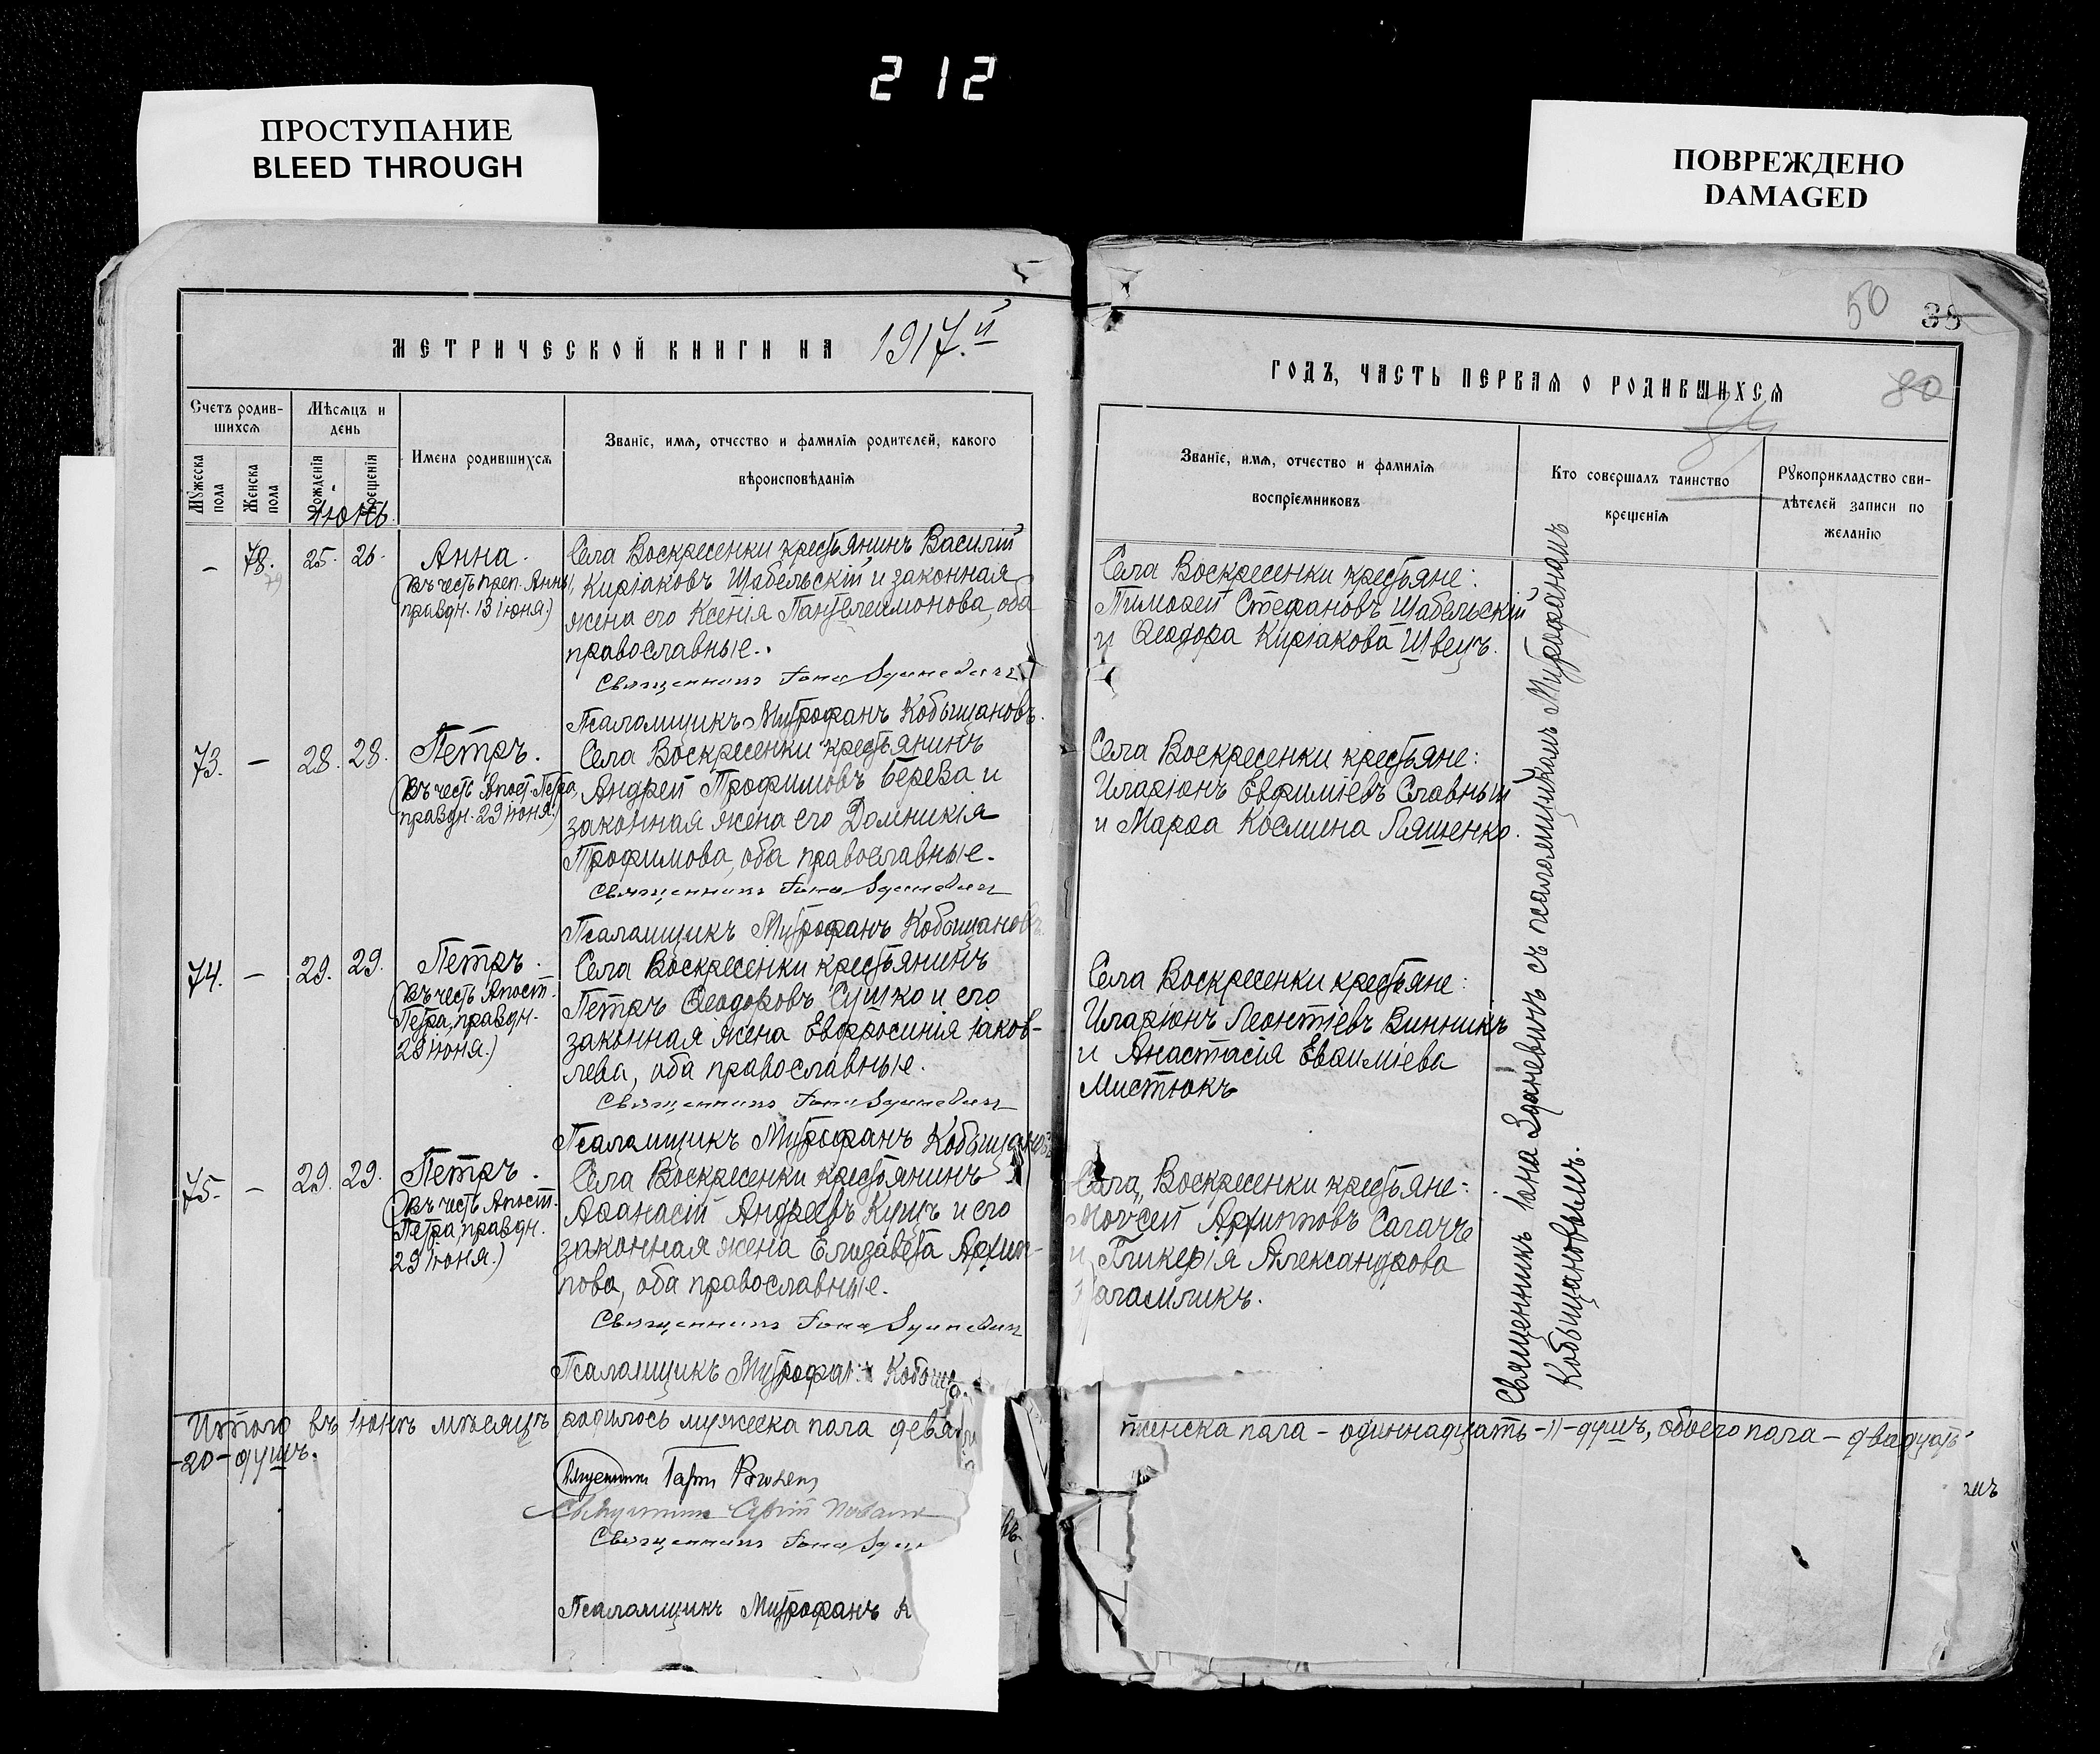 212
ПРОСТУПАНИЕ
BLEED THROUGH
ПОВРЕЖДЕНО
DAMAGED
МЕТРИЧЕСКОЙ КНИГИ НА 1917.й
Счетъ родив-
шихся
Мужеска пола
Женска пола
Мѣсяцъ и
день
Рожденія
Крещенія
Имена родившихся
Званіе, имя, отчество и фамилія родителей, какого
вѣроисповѣданія
Іюнь.
– 78. 25. 26. Анна.
79
(Въ честь преп. Анны,
праздн. 13 іюня.)
Села Воскресенки крестьянинъ Василій
Киріаковъ Шабельскій и законная
жена его Ксенія Пантелеимонова, оба
православные.
Священникъ Іона Зданевичъ
Псаломщикъ Митрофанъ Кобыщановъ.
73. – 28. 28. Петръ.
(Въ честь Апост. Петра,
праздн. 29 іюня.)
Села Воскресенки крестьянинъ
Андрей Трофимовъ Береза и
законная жена его Домникія
Трофимова, оба православные.
Священникъ Іона Зданевичъ
Псаломщикъ Митрофанъ Кобыщановъ.
74. – 29. 29. Петръ.
(Въ честь Апост.
Петра, праздн.
29 іюня.)
Села Воскресенки крестьянинъ
Петръ Ѳеодоровъ Сушко и его
законная жена Евфросинія Іаков-
лева, оба православные.
Священникъ Іона Зданевичъ
Псаломщикъ Митрофанъ Кобыщановъ
75. – 29. 29. Петръ.
(Въ честь Апост.
Петра, праздн.
29 іюня.)
Села Воскресенки крестьянинъ
Аѳанасій Андреевъ Кущъ и его
законная жена Елизавета Архип-
пова, оба православные.
Священникъ Іона Зданевичъ
Псаломщикъ Митрофанъ Кобыща
Итого въ іюнѣ мѣсяцѣ родилось мужеска пола девя
-20- душъ.
Священникъ
Священникъ
Священникъ Іона Здан
Псаломщикъ Митрофанъ К
50
38
80
ГОДЪ, ЧАСТЬ ПЕРВАЯ О РОДИВШИХСЯ
Званіе, имя, отчество и фамилія
воспріемниковъ
Кто совершалъ таинство
крещенія
Рукоприкладство сви-
дѣтелей записи по
желанію
Села Воскресенки крестьяне:
Тимоѳей Стефановъ Шабельскій
и Ѳеодора Киріакова Швецъ.
Села Воскресенки крестьяне:
Иларіонъ Евфиміевъ Славный
и Марѳа Космина Ляшенко.
Села Воскресенки крестьяне:
Иларіонъ Леонтіевъ Винникъ
и Анастасія Евѳиміева
Мистюкъ
Села Воскресенки крестьяне:
Моѵсей Архипповъ Сагачъ
и Гликерія Александрова
агамликъ.
Священникъ Іона Зданевичъ съ псаломщикомъ Митрофаномъ
Кобыщановымъ.
женска пола – одиннадцать -11- душъ, обоего пола – двадцать